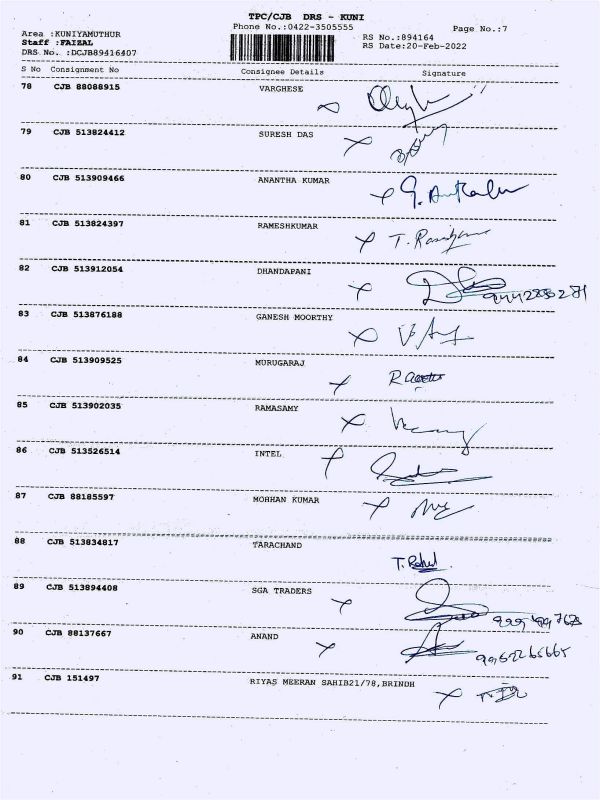 TPC/CJB DRS - KUNI
Phone No.:0422-3505555 Page No.:7
Area :KUNIYAMUTHUR RS No.:894164
Staff :FAIZAL RS Date:20-Feb-2022
DRS No. :DCJB89416407
S No Consignment No Consignee Details Signature
78 CJB 88088915 VARGHESE
79 CJB 513824412 SURESH DAS
80 CJB 513909466 ANANTHA KUMAR
81 CJB 513824397 RAMESHKUMAR
82 CJB 513912054 DHANDAPANI
83 CJB 513876188 GANESH MOORTHY
84 CJB 513909525 MURUGARAJ
85 CJB 513902035 RAMASAMY
86 CJB 513526514 INTEL
87 CJB 88185597 MOHHAN KUMAR
88 CJB 513834817 TARACHAND
T. Rahul
89 CJB 513894408 SGA TRADERS
90 CJB 88137667 ANAND
9952265665
91 CJB 151497 RIYAS MEERAN SAHIB21/78,BRINDH